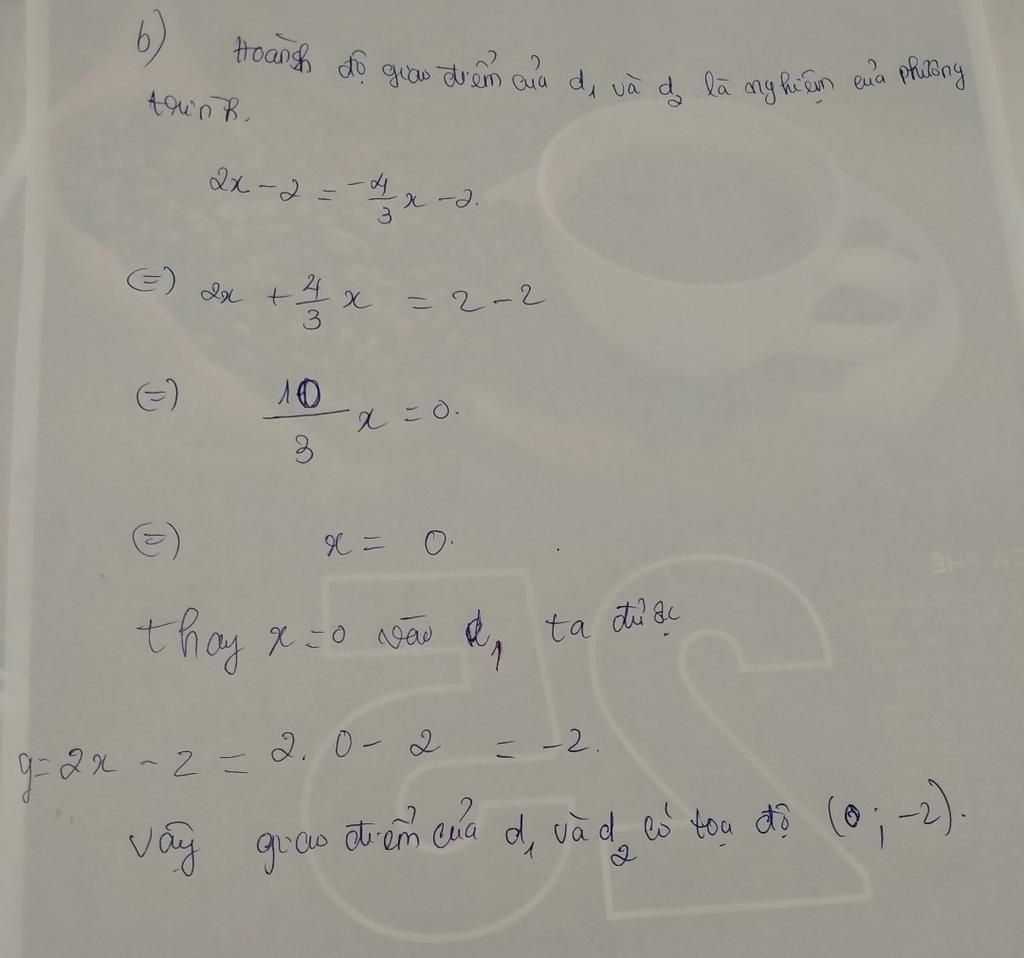 b) Hoành độ giao điểm của d₁ và d₂ là nghiệm của phương
trình.
2x - 2 = -4/3 x - 2.
(=) 2x + 4/3 x = 2 - 2
(=) 10/3 x = 0.
(=) x = 0.
thay x = 0 vào d₁ ta được
y = 2x - 2 = 2. 0 - 2 = -2.
Vậy giao điểm của d₁ và d₂ có tọa độ (0 ; -2).
CÀ PHÊ
25